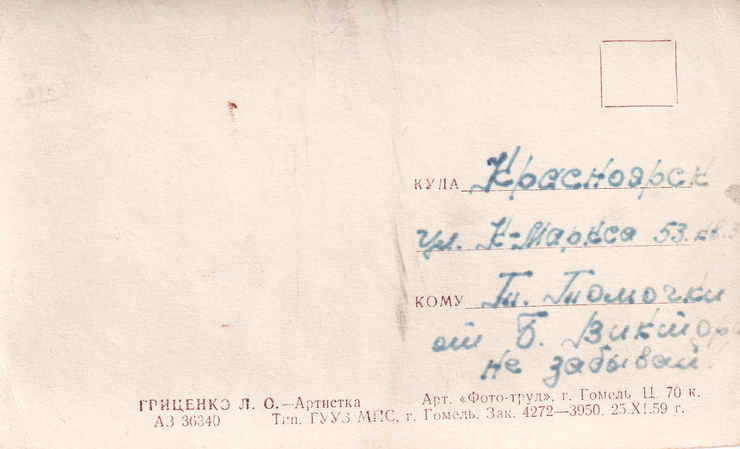 КУДА Красноярск
ул. К-Маркса 53. кв.
КОМУ Тт. Томочки
от Б. Виктор
не забывай.
ГРИЦЕНКО Л. О.—Артистка
АЗ 36340
Арт. «Фото-труд», г. Гомель Ц. 70 к.
Тип. ГУУЗ МПС, г. Гомель. Зак. 4272—3950. 25.XI.59 г.